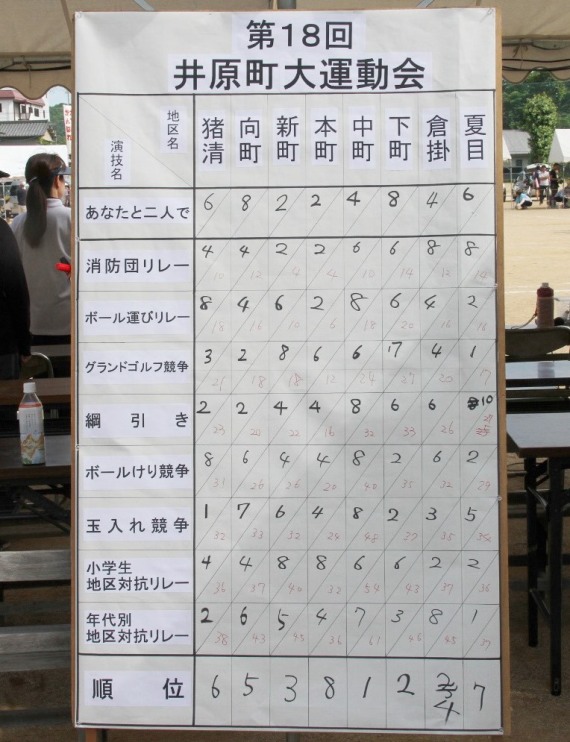 第18回
井原町大運動会
地区名
演技名
猪清 向町 新町 本町 中町 下町 倉掛 夏目
あなたと二人で 6 8 2 2 4 8 4 6
消防団リレー 4 4 2 2 6 6 8 8
10 12 4 4 10 14 12 14
ボール運びリレー 8 4 6 2 8 6 4 2
18 16 10 6 18 20 16 16
グランドゴルフ競争 3 2 8 6 6 7 4 1
21 18 18 12 24 27 20 17
綱引き 2 2 4 4 8 6 6 10
23 20 22 16 32 33 26
ボールけり競争 8 6 4 4 8 2 6 2
31 26 26 20 40 35 32 29
玉入れ競争 1 7 6 4 8 2 3 5
32 33 32 24 48 37 35
小学生
地区対抗リレー 4 4 8 8 6 6 2 2
36 37 40 32 54 43 37 36
年代別
地区対抗リレー 2 6 5 4 7 3 8 1
38 43 45 36 61 46 45 37
順位 6 5 3 8 1 2 4 7